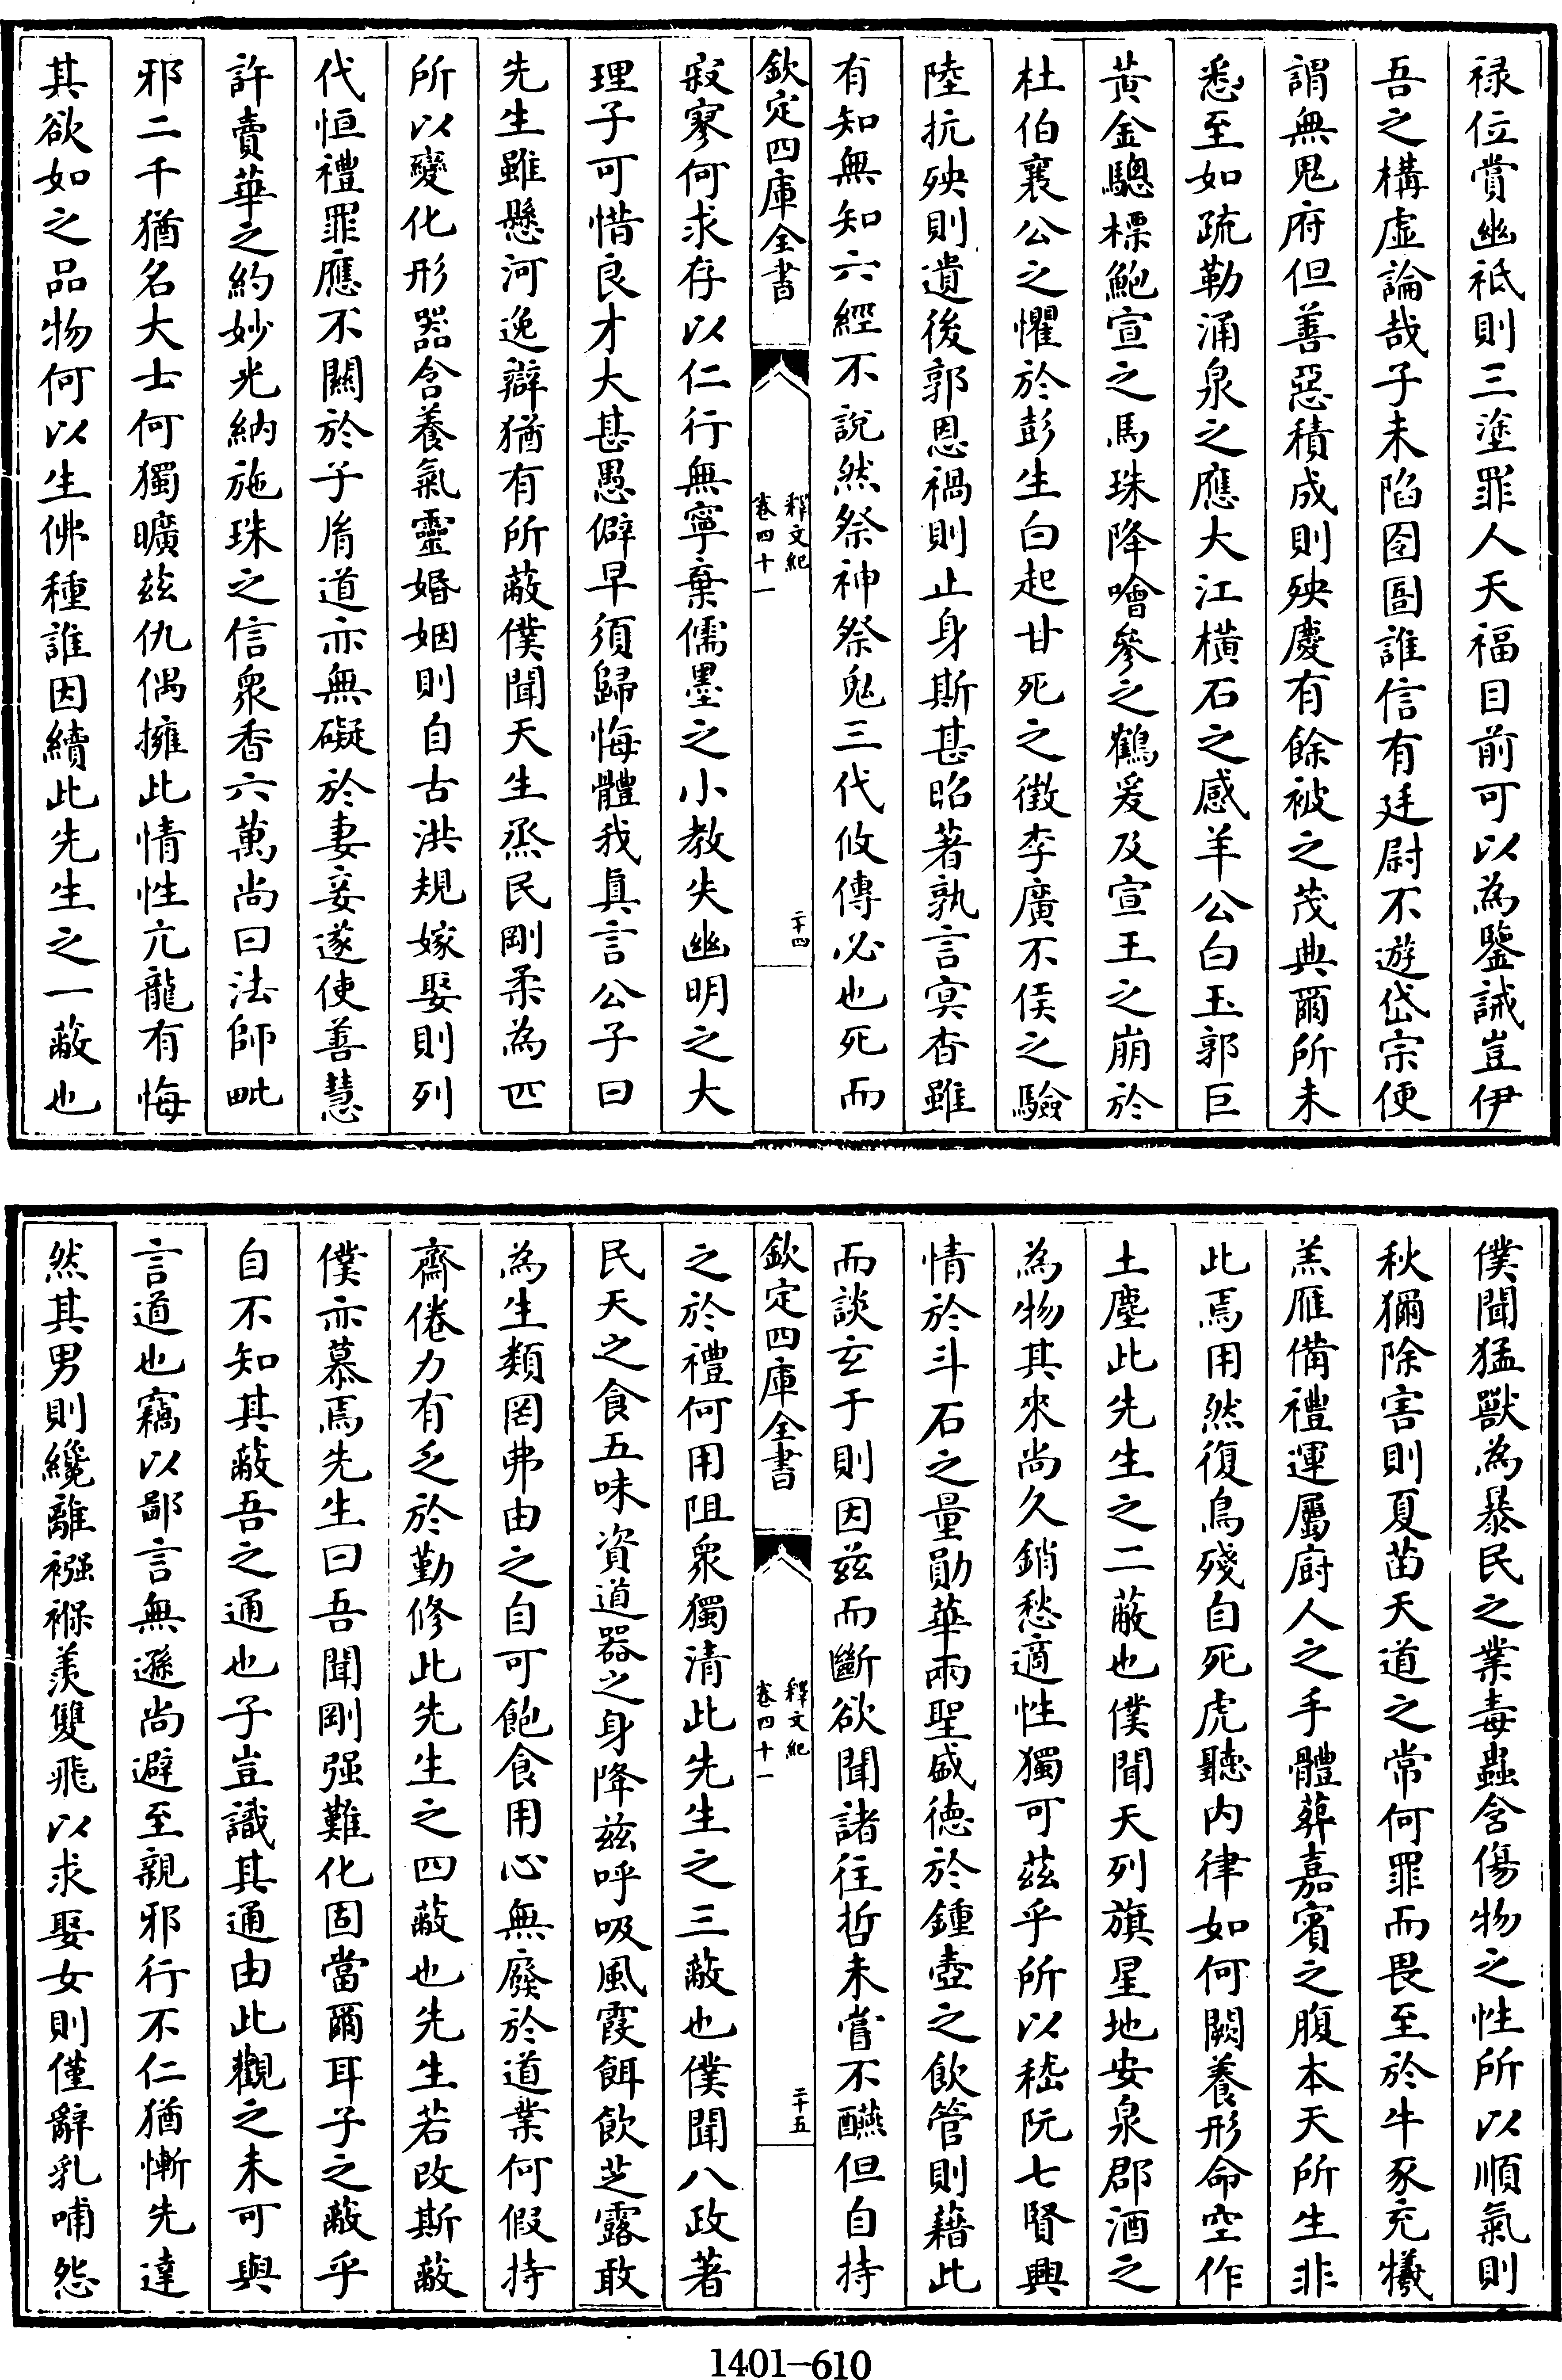 禄位賞幽祇則三塗罪人天福目前可以為鑒誡豈伊
吾之構虚論哉子未陷囹圄誰信有廷尉不遊岱宗便
謂無鬼府但善惡積成則殃慶有餘被之茂典爾所未
悉至如疏勒涌泉之應大江橫石之感羊公白玉郭巨
黃金驄標鮑宣之馬珠降噲參之鶴爰及宣王之崩於
杜伯襄公之懼於彭生白起甘死之徵李廣不侯之驗
陸抗殃則遺後郭恩禍則止身斯甚昭著孰言㝠杳雖
有知無知六經不說然祭神祭鬼三代攸傳必也死而
欽定四庫全書
釋文紀
卷四十一
二十四
寂寥何求存以仁行無寧棄儒墨之小教失幽明之大
理子可惜良才大甚愚僻早須歸悔體我真言公子曰
先生雖懸河逸辯猶有所蔽僕聞天生烝民剛柔為匹
所以變化形器含養氣靈婚姻則自古洪規嫁娶則列
代恒禮罪應不關於子胤道亦無礙於妻妾遂使善慧
許賣華之約妙光納施珠之信衆香六萬尚曰法師毗
邪二千猶名大士何獨曠茲仇偶擁此情性亢龍有悔
其欲如之品物何以生佛種誰因續此先生之一蔽也
僕聞猛獸為暴民之業毒蟲含傷物之性所以順氣則
秋獮除害則夏苗天道之常何罪而畏至於牛豕充犧
羔雁備禮運屬廚人之手體葬嘉賓之腹本天所生非
此焉用然復鳥殘自死虎聽内律如何闕養形命空作
土塵此先生之二蔽也僕聞天列旗星地安泉郡酒之
為物其來尚久銷愁適性獨可茲乎所以嵇阮七賢興
情於斗石之量勛華兩聖盛德於鍾壺之飲管則藉此
而談玄于則因兹而斷欲聞諸往哲未嘗不醼但自持
欽定四庫全書
釋文紀
卷四十一
二十五
之於禮何用阻衆獨清此先生之三蔽也僕聞八政著
民天之食五味資道器之身降兹呼吸風霞餌飲芝露敢
為生類罔弗由之自可飽食用心無廢於道業何假持
齋倦力有乏於勤修此先生之四蔽也先生若改斯蔽
僕亦慕焉先生曰吾聞剛强難化固當爾耳子之蔽乎
自不知其蔽吾之通也子豈識其通由此觀之未可與
言道也竊以鄙言無遜尚避至親邪行不仁猶慚先達
然其男則纔離襁褓羨雙飛以求娶女則僅辭乳哺怨
1401-610